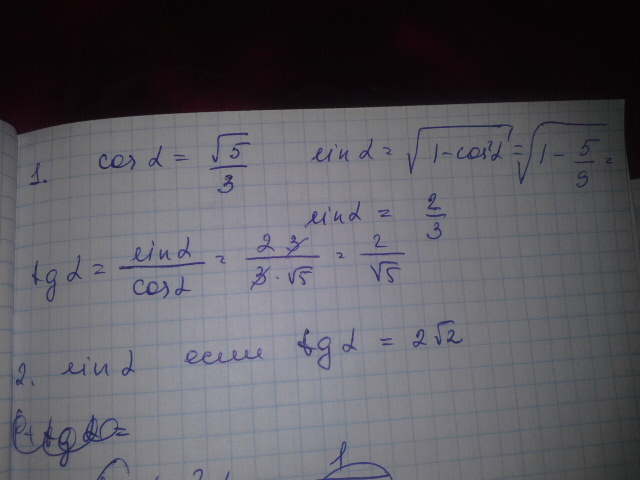 1. cos α = √5/3 sin α = √(1-cos²α) = √(1 - 5/9) =
sin α = 2/3
tg α = sin α/cos α = 2 3/3·√5 = 2/√5
2. sin α если tg α = 2√2
1